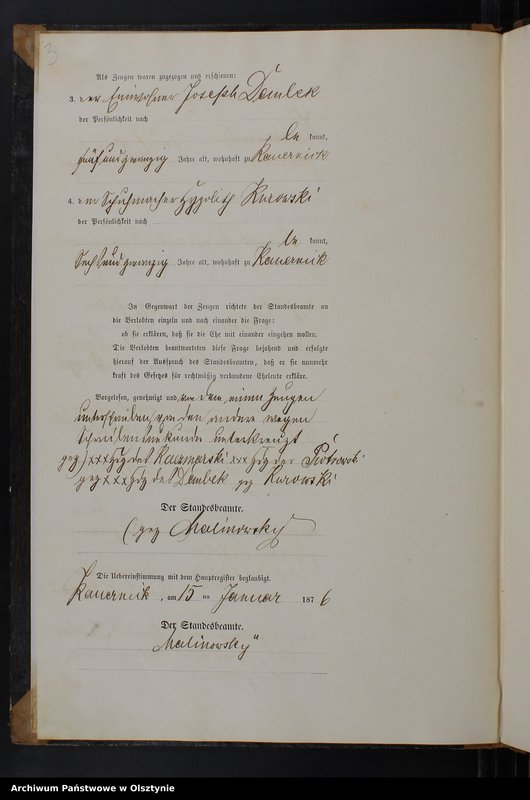 3
Als Zeugen waren zugezogen und erschienen:
3. der Einwohner Joseph Dembek
der Persönlichkeit nach
be kannt,
fünfundzwanzig Jahre alt, wohnhaft zu Kauernick
4. der Schuhmacher Hypolith Kurowski
der Persönlichkeit nach
be kannt,
Sechsundzwanzig Jahre alt, wohnhaft zu Kauernick
In Gegenwart der Zeugen richtete der Standesbeamte an
die Verlobten einzeln und nach einander die Frage:
ob sie erklären, daß sie die Ehe mit einander eingehen wollen.
Die Verlobten beantworteten diese Frage bejahend und erfolgte
hierauf der Ausspruch des Standesbeamten, daß er sie nunmehr
kraft des Gesetzes für rechtmäßig verbundene Eheleute erkläre.
Vorgelesen, genehmigt und von dem einen Zeugen
unterschrieben, von den andern wegen
Schreibensunkunde unterkreuzt
gez) xxx Hdz des Kaczmarski xxx Hdz der
gez xxx Hdz des Dembek gez Kurowski
Der Standesbeamte.
(gez Malinowsky
Die Uebereinstimmung mit dem Hauptregister beglaubigt.
Kauernick, am 15 ten Januar 1876
Der Standesbeamte.
Malinowsky
Archiwum Państwowe w Olsztynie